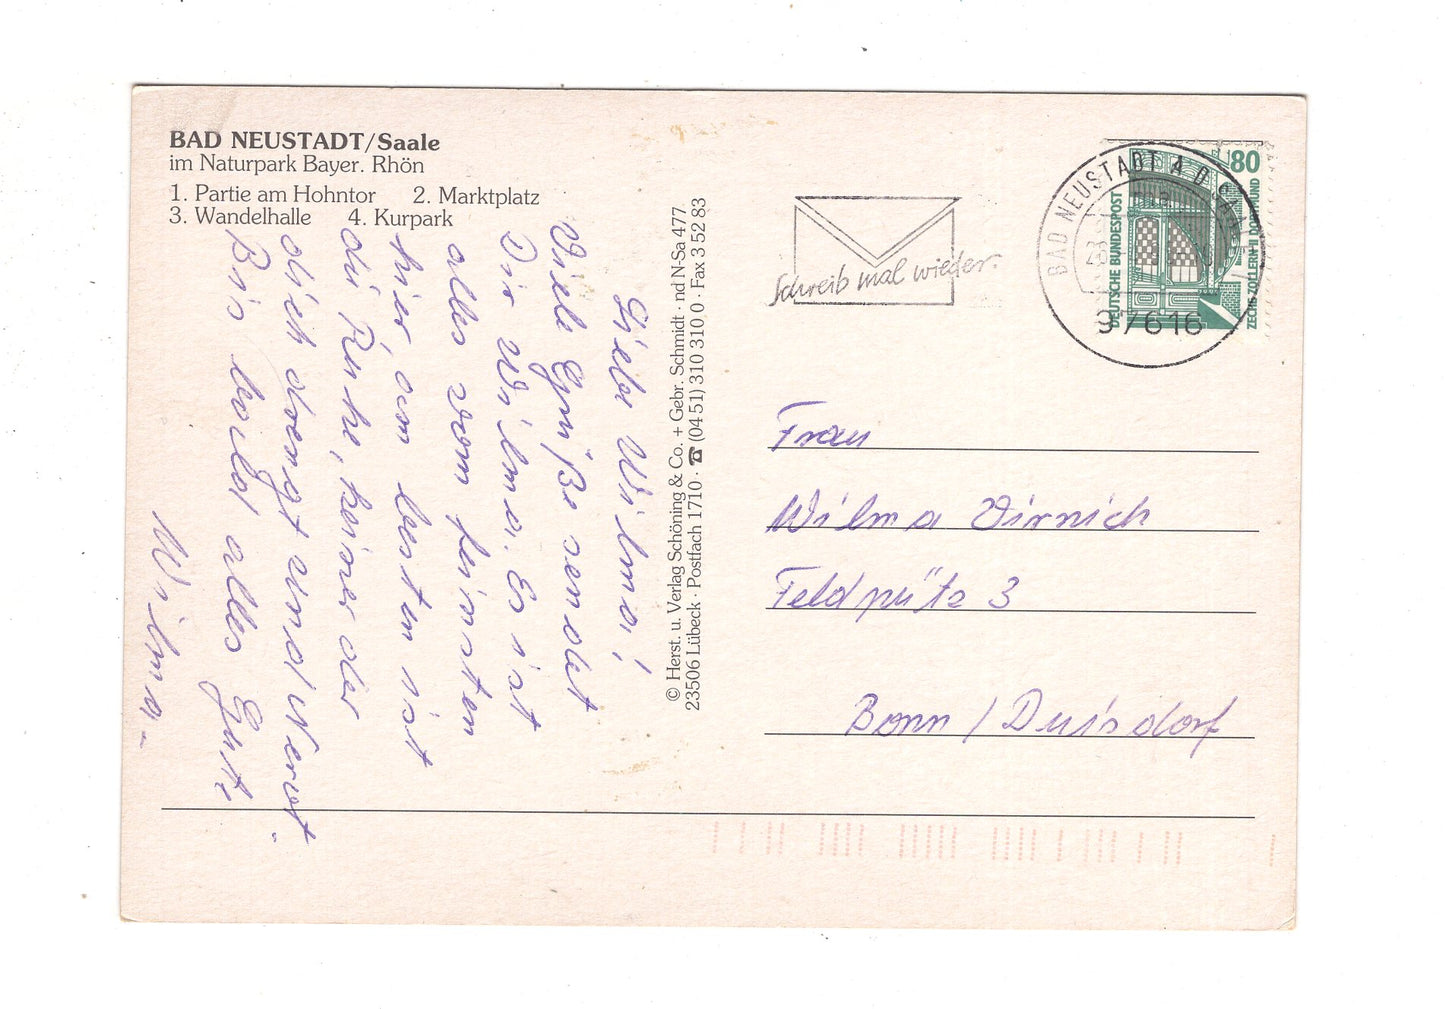 BAD NEUSTADT/Saale
im Naturpark Bayer. Rhön
1. Partie am Hohntor 2. Marktplatz
3. Wandelhalle 4. Kurpark
Liebe Wilma!
Viele Grüße sendet
Dir Wilma. Es ist
alles vom feinsten
hier, am besten ist
die Ruhe, keiner der
dich drengt und Nervt.
Bis bald alles Gute
Wilma.
© Herst. u. Verlag Schöning & Co. + Gebr. Schmidt · nd N-Sa 477
23506 Lübeck · Postfach 1710 · ☎ (04 51) 310 310 0 · Fax 3 52 83
Schreib mal wieder.
BAD NEUSTADT A D SAALE
97616
80
DEUTSCHE BUNDESPOST
ZECHE ZOLLERN II DORTMUND
Frau
Wilma Virnich
Feldpütz 3
Bonn / Duisdorf